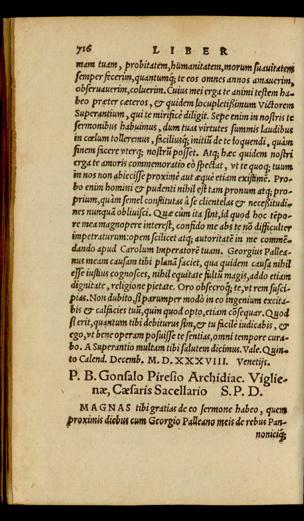 716 LIBER
mam tuam, probitatem, humanitatem, morum suauitatem
semper fecerim, quantumq́; te eos omnes annos amauerim,
obseruauerim, coluerim. Cuius mei erga te animi testem ha-
beo præter cæteros, & quidem locupletißimum Victorem
Superantium, qui te mirificè diligit. Sepe enim in nostris te
sermonibus habuimus, dum tuas virtutes summis laudibus
in cœlum tolleremus, faciliusq́; initiũ de te loquendi, quàm
finem facere vterq; nostrũ posset. Atq; hæc quidem nostri
erga te amoris commemoratio eò spectat, vt te quoq; tuum
in nos non abiecisse proximè aut æquè etiam existimẽ. Pro-
bo enim homini & pudenti nihil est tam pronum atq; pro-
prium, quàm semel constitutas à se clientelas & neceßitudi-
nes nunquã obliuisci. Quæ cum ita sint, id quod hoc tẽpo-
re mea magnopere interest, confido me abs te nõ difficulter
impetraturum: opem scilicet atq; autoritatẽ in me commẽ-
dando apud Carolum Imperatorẽ tuam. Georgius Palleа-
nus meam causam tibi planã faciet, qua quidem causa nihil
esse iustius cognosces, nihil equitate fultũ magis, addo etiam
dignitate, religione, pietate. Oro obsecroq́; te, vt rem susci-
pias. Non dubito, si parumper modò in eo ingenium excita-
bis & calfacies tuũ, quin quod opto, etiam cõsequar. Quod
si erit, quantum tibi debiturus sim, & tu facile iudicabis, &
ego, vt bene operam posuisse te sentias, omni tempore cura-
bo. A Superantio multam tibi salutem dicimus. Vale. Quin-
to Calend. Decemb. M. D. XXXVIII. Venetijs.
P. B. Gonsalo Piresio Archidiac. Viglie-
næ, Cæsaris Sacellario S. P. D.
MAGNAS tibi gratias de eo sermone habeo, quem
proximis diebus cum Georgio Palleano meis de rebus Pan-
nonicisq́;